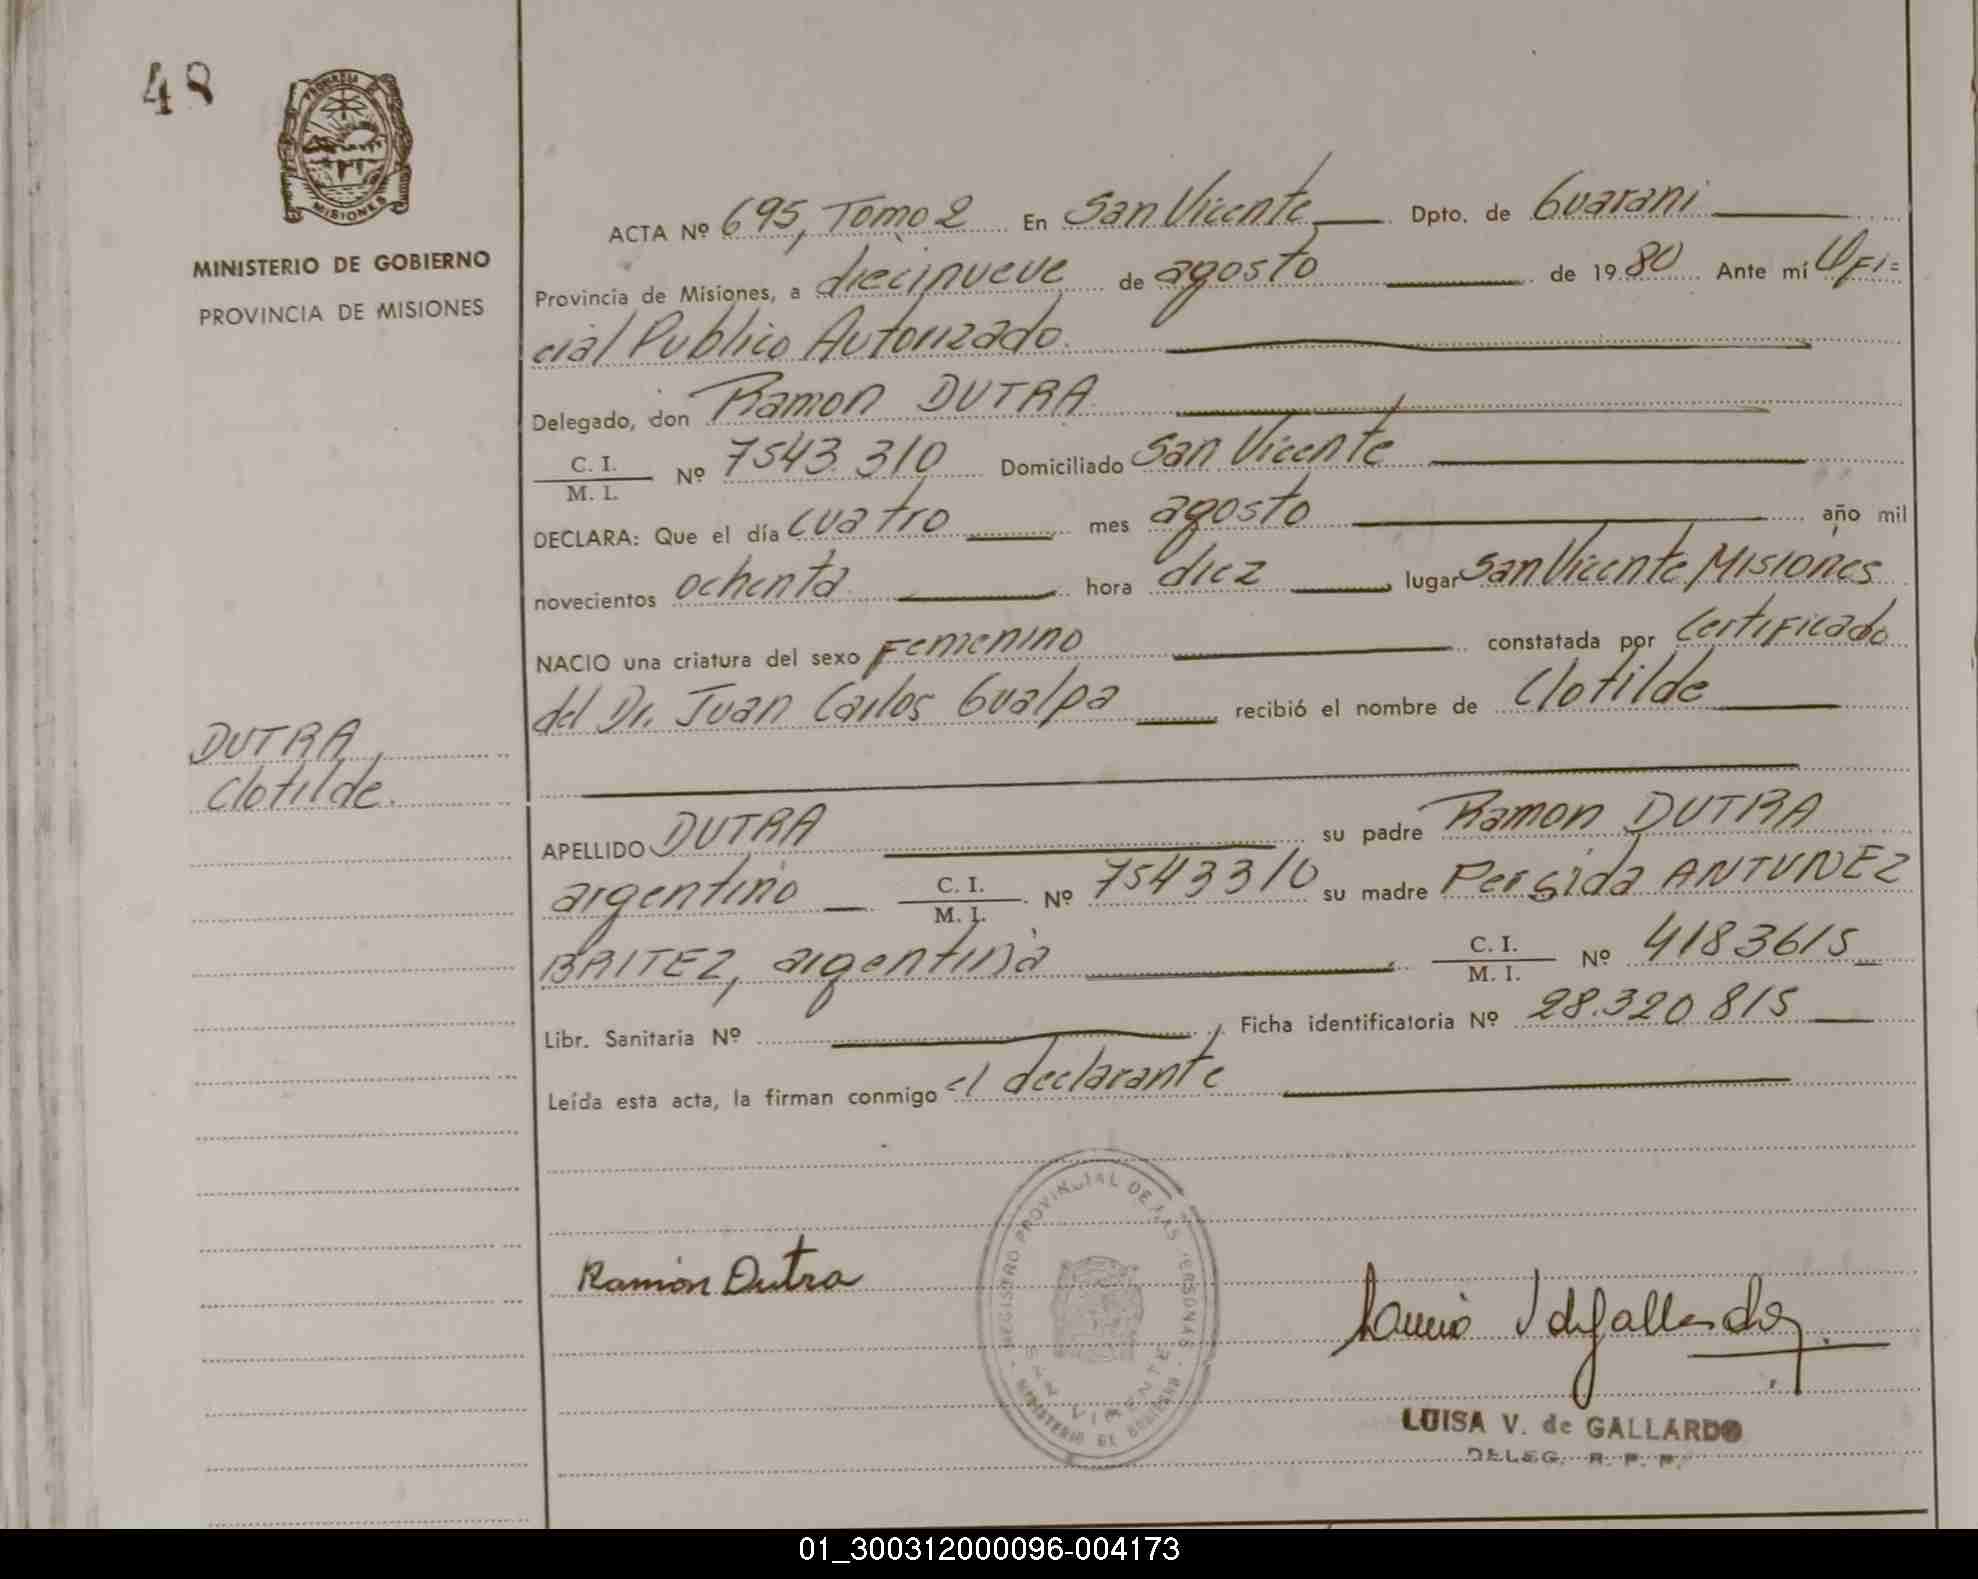 48
PROVINCIA DE
MISIONES
MINISTERIO DE GOBIERNO
PROVINCIA DE MISIONES
DUTRA
Clotilde.
ACTA Nº 695, Tomo 2 En San Vicente Dpto. de Guarani
Provincia de Misiones, a diecinueve de agosto de 1980 Ante mí Ofi=
cial Publico Autorizado.
Delegado, don Ramon DUTRA
C. I.
M. I. Nº 7543.310 Domiciliado San Vicente
DECLARA: Que el día cuatro mes agosto año mil
novecientos ochenta hora diez lugar San Vicente, Misiones
NACIO una criatura del sexo Femenino constatada por Certificado
del Dr. Juan Carlos Gualpa recibió el nombre de Clotilde
APELLIDO DUTRA su padre Ramon DUTRA
argentino C. I. / M. I. Nº 7543310 su madre Persida ANTUNEZ
BRITEZ, argentina C. I. / M. I. Nº 4183615
Libr. Sanitaria Nº Ficha identificatoria Nº 28.320.815
Leída esta acta, la firman conmigo el declarante
REGISTRO PROVINCIAL DE LAS PERSONAS
SAN VICENTE
MINISTERIO DE GOBIERNO
Ramón Dutra
LUISA V. de GALLARDO
DELEG. R. P. P.
01_300312000096-004173